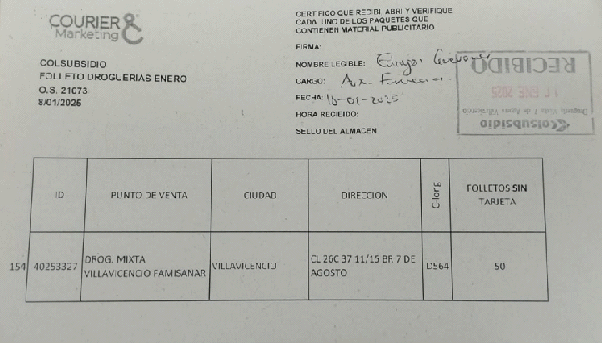 COURIER
Marketing
COLSUBSIDIO
FOLLETO DROGUERIAS ENERO
O.S. 21073
8/01/2025
CERTIFICO QUE RECIBI, ABRI Y VERIFIQUE
CADA UNO DE LOS PAQUETES QUE
CONTIENEN MATERIAL PUBLICITARIO
FIRMA:
NOMBRE LEGIBLE:
CARGO: Aux
FECHA: -01-2025
HORA RECIBIDO:
SELLO DEL ALMACEN
RECIBIDO
ENE 2025
Colsubsidio
ID PUNTO DE VENTA CIUDAD DIRECCION FOLLETOS SIN TARJETA
154 40253327 DROG. MIXTA VILLAVICENCIO FAMISANAR VILLAVICENCIO CL 26C 37 11/15 BR 7 DE AGOSTO D564 50